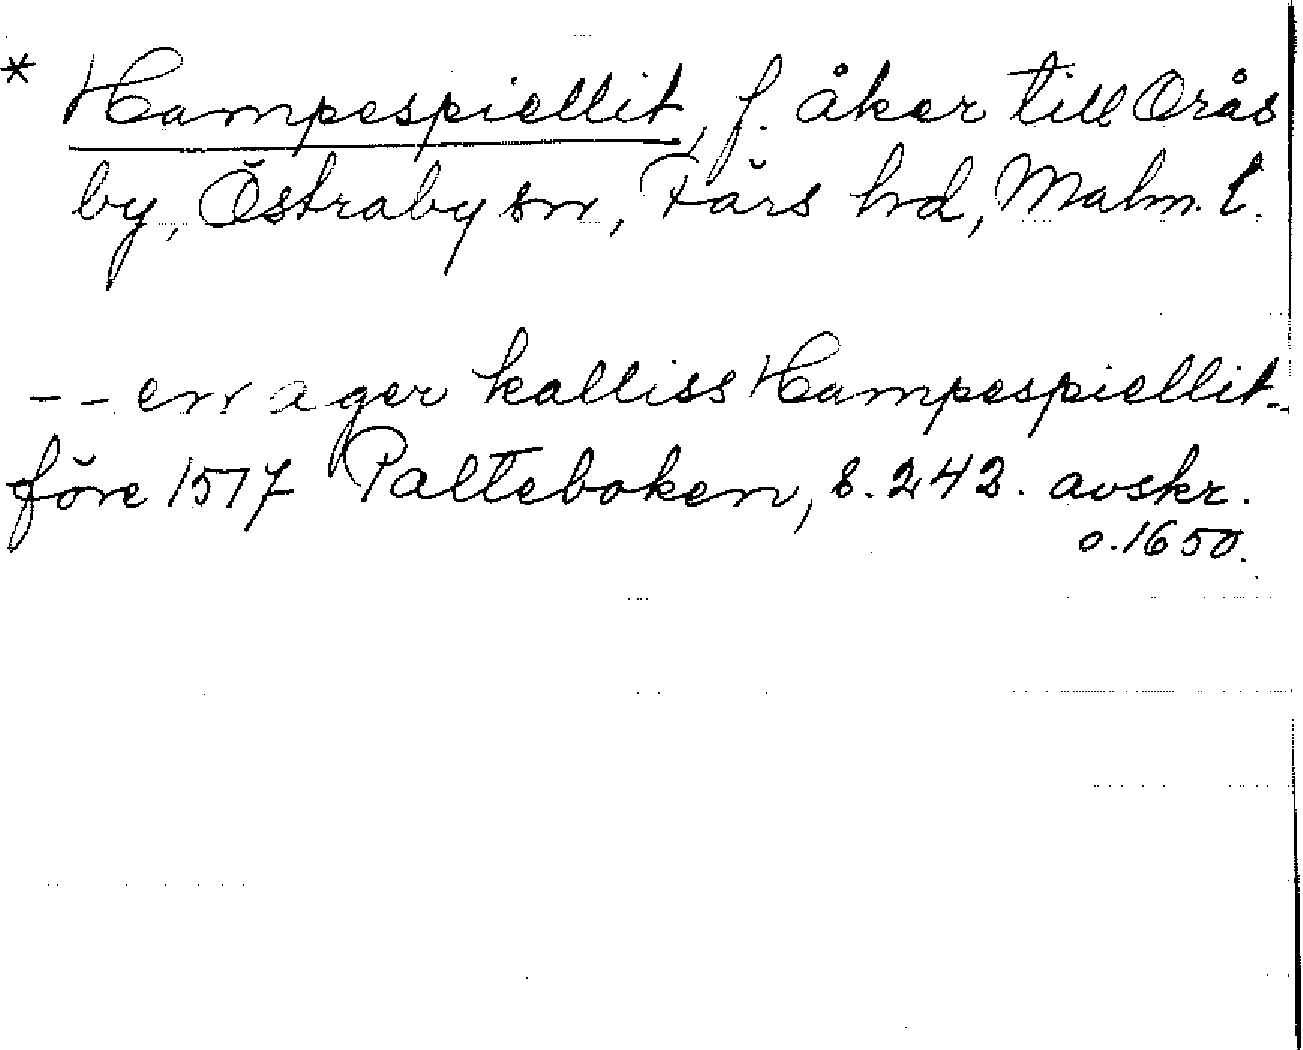 * Hampespiellit, f. åker till Orås
by, Östraby sn, Färs hd, Malm. l.
-- en ager kalliss Hampespiellit --
före 1517 Palteboken, s. 242. avskr.
o. 1650.